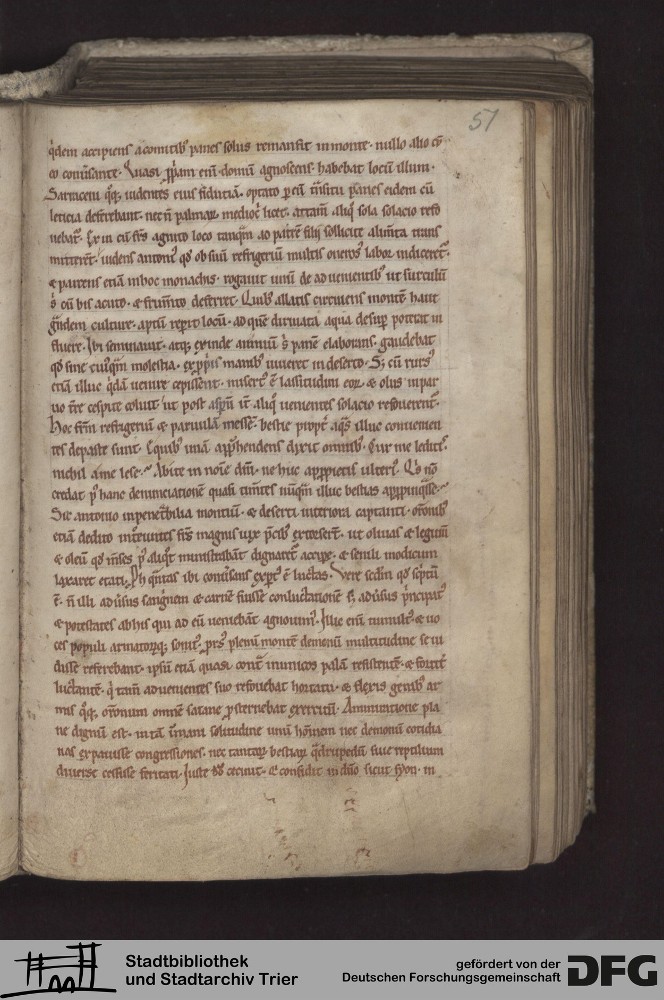 57
q̇dem accipiens a comitib' panes solus remansit in monte. nullo alio cū
eo conūsante. Quasi ꝓp̄am enī domū agnoscens. habebat locū illum.
Sarraceni q̄q; uidentes eius fiduciā. optato
panes eidem cū
leticia deferebant. nec n̄ palmaꝝ licet. attam̄ aliq̇ sola solacio refo
uebat. Ex in cū frs̄ agnito loco tanq̄m ad patrē filii solliciti alim̄ta trans
mitterēt. uidens antoni' qđ ob suū refrigeriū multis labor indiceret.
& parcens etiā in hoc monachis. rogauit unū de aduenientib' ut
cū bis acuto. & frum̄to deferret. Quib' allatis circumiens montē haut
culture. aptū repperit locū. ad quē diriuata aqua desup poterat in
fluere. ibi seminauit. atq; exinde annuū s̄ panē elaborans. gaudebat
qđ sine cuiq̄m molestia. ex pp̄is manib' uiueret in deserto. S; cū rurs'
etiā illuc q̇dā uenire cepissent. misert' ē lassitudini eoꝝ. & olus in par
uo tr̄e cespite coluit. ut post asp̄ū it̄ aliq̇ uenientes solacio refouerent.
Hoc refrigeriū & paruulā messē. bestie ppt̄ aq̄s illuc conuenien
tes depaste sunt. E quib' unā app̄hendens dixit omnib'. Cur me leditis
nichil a me lese. Abite in noīe dn̄i. ne huc app̄pietis ulteri'. Q's nō
credat p' hanc denunciationē quasi tim̄tes nūq̄m illuc bestias app̄pinq̄sse.
Sic antonio inpenet̄bilia montiū. & deserti interiora captanti. or̄onib'
etiā dedito frs̄ magnis uix p̄cib' extorser̄t. ut oliuas & legum̄
& oleū qđ m̄ses p' aliq̇t ministrabāt dignaret̄ accipe. & senili modicum
laxaret etati. ibi conūsans expt' ē luctas. Vere scdm̄ qđ sc̄ptū
ē. n̄ illi aduūsus sangnem & carnē fuisse conluctationē s; aduūsus p̄ncipat'
& potestates ab his qui ad eū ueniebāt agnouim'. Illuc enī tumult' & uo
ces populi armatorūq; sonit'. p̄rs' plenū montē demonū multitudine se ui
disse referebant. ipsū etiā quasi cont̄ inimicos palā resistentē. & fortit̄
luctantē. q̇ tam̄ aduenientes suo refouebat hortatu. & flexis genib' ar
mis q̄q; or̄onum omnē satane psternebat exercitū. Ammiratione pla
ne dignū est. in tā īmani solitudine unū hōinem nec demonū cotidia
nas expauisse congressiones. nec tantaꝝ bestiaꝝ q̄drupedū siue reptilium
diuerse cessisse feritati. Juste dd̄ cecinit. Q' confidit in dn̄o sicut syon. in
Stadtbibliothek
und Stadtarchiv Trier
gefördert von der
Deutschen Forschungsgemeinschaft
DFG